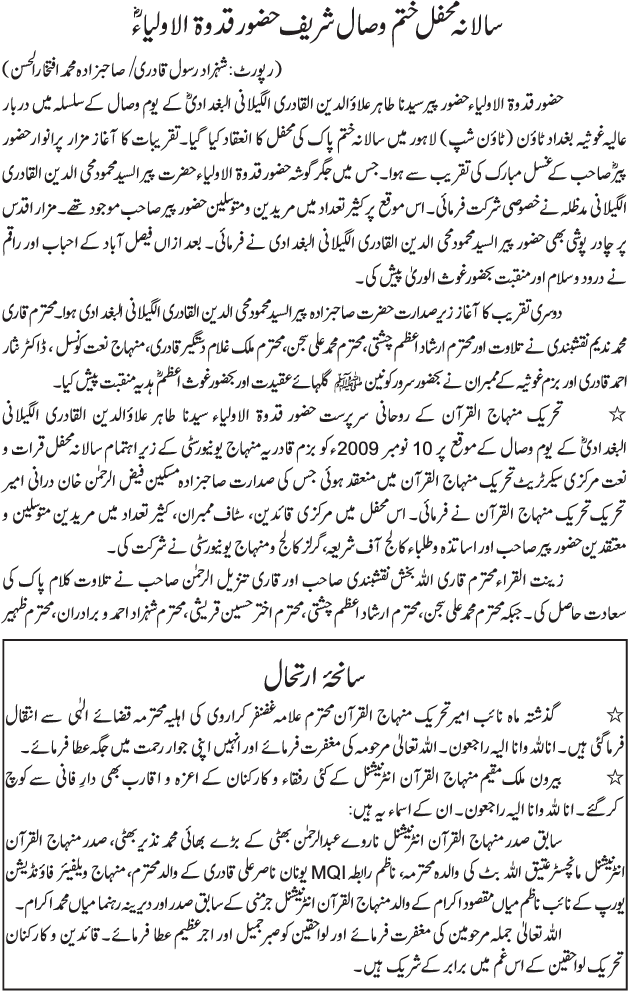 سالانہ محفل ختم وصال شریف حضور قدوۃ الاولیاءؒ
(رپورٹ: شہزاد رسول قادری/ صاحبزادہ محمد افتخار الحسن)
حضور قدوۃ الاولیاء حضور پیر سیدنا طاہر علاؤ الدین القادری الگیلانی البغدادیؒ کے یوم وصال کے سلسلہ میں دربار
عالیہ غوثیہ بغداد ٹاؤن (ٹاؤن شپ) لاہور میں سالانہ ختم پاک کی محفل کا انعقاد کیا گیا۔ تقریبات کا آغاز مزار پرانوار حضور
پیرؒ صاحب کے غسل مبارک کی تقریب سے ہوا۔ جس میں جگر گوشہ حضور قدوۃ الاولیاء حضرت پیر السید محمود محی الدین القادری
الگیلانی مدظلہ نے خصوصی شرکت فرمائی۔ اس موقع پر کثیر تعداد میں مریدین و متوسلین حضور پیر صاحب موجود تھے۔ مزار اقدس
پر چادر پوشی بھی حضور پیر السید محمود محی الدین القادری الگیلانی البغدادی نے فرمائی۔ بعد ازاں فیصل آباد کے احباب اور راقم
نے درود و سلام اور منقبت بحضور غوث الوریٰ پیش کی۔
دوسری تقریب کا آغاز زیر صدارت حضرت صاحبزادہ پیر السید محمود محی الدین القادری الگیلانی البغدادی ہوا۔ محترم قاری
محمد ندیم نقشبندی نے تلاوت اور محترم ارشاد اعظم چشتی، محترم محمد علی سجن، محترم ملک غلام دستگیر قادری، منہاج نعت کونسل، ڈاکٹر نثار
احمد قادری اور بزم غوثیہ کے ممبران نے بحضور سرور کونین ﷺ گلہائے عقیدت اور بحضور غوث اعظمؒ ہدیہ منقبت پیش کیا۔
☆ تحریک منہاج القرآن کے روحانی سرپرست حضور قدوۃ الاولیاء سیدنا طاہر علاؤ الدین القادری الگیلانی
البغدادیؒ کے یوم وصال کے موقع پر 10 نومبر 2009ء کو بزم قادریہ منہاج یونیورسٹی کے زیر اہتمام سالانہ محفل قرات و
نعت مرکزی سیکرٹریٹ تحریک منہاج القرآن میں منعقد ہوئی جس کی صدارت صاحبزادہ مسکین فیض الرحمٰن خان درانی امیر
تحریک تحریک منہاج القرآن نے فرمائی۔ اس محفل میں مرکزی قائدین، سٹاف ممبران، کثیر تعداد میں مریدین متوسلین و
معتقدین حضور پیر صاحب اور اساتذہ و طلباء کالج آف شریعہ، گرلز کالج و منہاج یونیورسٹی نے شرکت کی۔
زینت القراء محترم قاری اللہ بخش نقشبندی صاحب اور قاری تنزیل الرحمٰن صاحب نے تلاوت کلام پاک کی
سعادت حاصل کی۔ جبکہ محترم محمد علی سجن، محترم ارشاد اعظم چشتی، محترم اختر حسین قریشی، محترم شہزاد احمد و برادران، محترم ظہیر
سانحۂ ارتحال
☆ گذشتہ ماہ نائب امیر تحریک منہاج القرآن محترم علامہ غضنفر کراروی کی اہلیہ محترمہ قضائے الٰہی سے انتقال
فرما گئی ہیں۔ انا للہ وانا الیہ راجعون۔ اللہ تعالیٰ مرحومہ کی مغفرت فرمائے اور انہیں اپنی جوار رحمت میں جگہ عطا فرمائے۔
☆ بیرون ملک مقیم منہاج القرآن انٹرنیشنل کے کئی رفقاء و کارکنان کے اعزہ و اقارب بھی دارِ فانی سے کوچ
کر گئے۔ انا للہ وانا الیہ راجعون۔ ان کے اسماء یہ ہیں:
سابق صدر منہاج القرآن انٹرنیشنل ناروے عبدالرحمٰن بھٹی کے بڑے بھائی محمد نذیر بھٹی، صدر منہاج القرآن
انٹرنیشنل مانچسٹر عتیق اللہ بٹ کی والدہ محترمہ، ناظم رابطہ MQI یونان ناصر علی قادری کے والد محترم، منہاج ویلفیئر فاؤنڈیشن
یورپ کے نائب ناظم میاں مقصود اکرام کے والد منہاج القرآن انٹرنیشنل جرمنی کے سابق صدر اور دیرینہ رہنما میاں محمد اکرام۔
اللہ تعالیٰ جملہ مرحومین کی مغفرت فرمائے اور لواحقین کو صبر جمیل اور اجر عظیم عطا فرمائے۔ قائدین و کارکنان
تحریک لواحقین کے اس غم میں برابر کے شریک ہیں۔